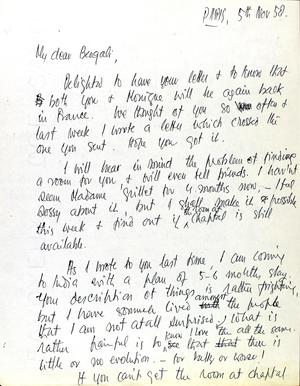 PARIS, 5th Nov 58.
My dear Bengali,
Delighted to have your letter & to know that
both you & Monique will be again back
in France. I've thought of you so often &
last week I wrote a letter which crossed the
one you sent. Hope you got it.
I will bear in mind the problem of finding
a room for you & will even tell friends. I havn't
seem Madame Grillet for 4 months now, - I feel
sorry about it, but I shall make it possible
this week & find out if the room at Chaptal is still
available.
As I wrote to you last time I am coming
to India with a plan of 5-6 months stay.
Your description of things is rather frightening,
but I have somuch lived amongst the people
that I am not atall surprised! What is
rather painful is to know that there is
I love them all the same.
little or no evolution - for bally or worse!
If you can't get the room at Chaptal